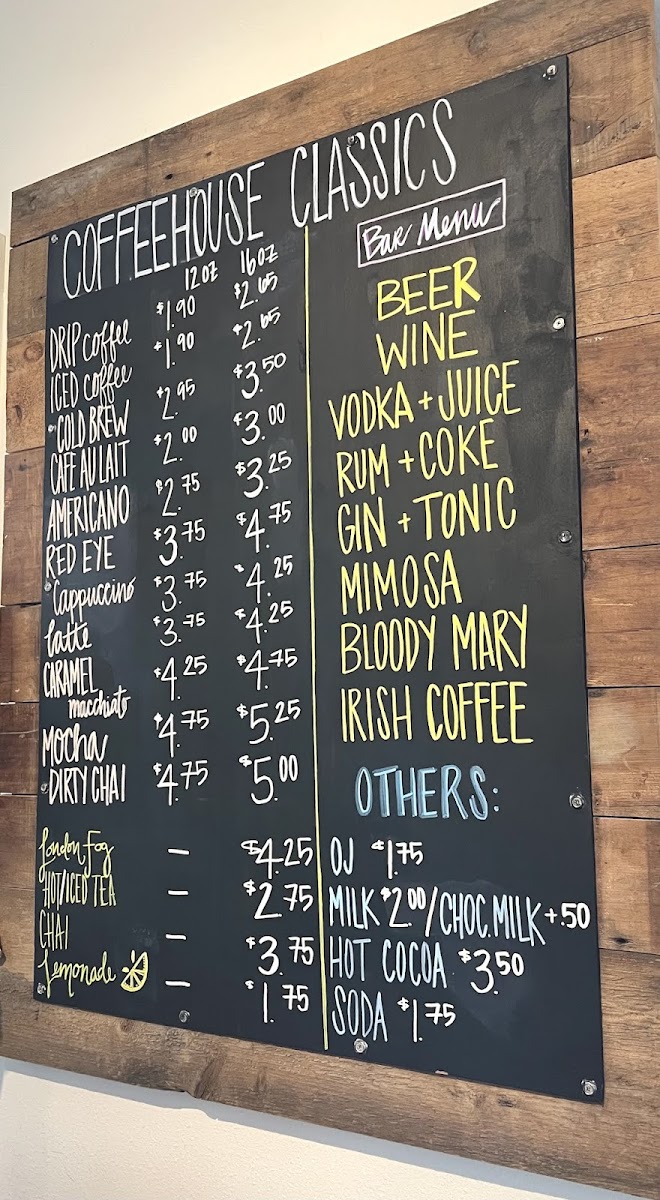 COFFEEHOUSE CLASSICS
12oz 16oz
DRIP coffee $1.90 $2.65
ICED coffee $1.90 $2.65
COLD BREW $2.95 $3.50
CAFE AU LAIT $2.00 $3.00
AMERICANO $2.75 $3.25
RED EYE $3.75 $4.75
Cappuccino $3.75 $4.25
Latte $3.75 $4.25
CARAMEL $4.25 $4.75
macchiato
Mocha $4.75 $5.25
DIRTY CHAI $4.75 $5.00
London Fog — $4.25
HOT/ICED TEA — $2.75
CHAI — $3.75
Lemonade — $1.75
Bar Menu
BEER
WINE
VODKA + JUICE
RUM + COKE
GIN + TONIC
MIMOSA
BLOODY MARY
IRISH COFFEE
OTHERS:
OJ $1.75
MILK $2.00/CHOC.MILK +.50
HOT COCOA $3.50
SODA $1.75